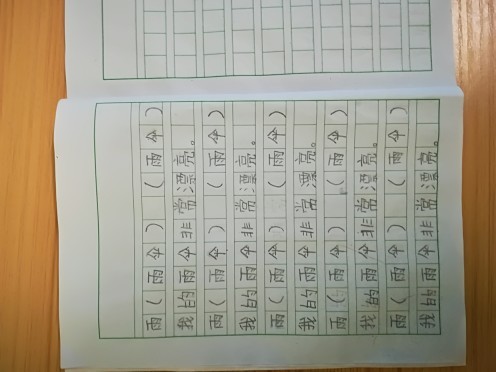 雨（雨伞）（雨伞）
我的雨伞非常漂亮。
雨（雨伞）（雨伞）
我的雨伞非常漂亮。
雨（雨伞）（雨伞）
我的雨伞非常漂亮。
雨（雨伞）（雨伞）
我的雨伞非常漂亮。
雨（雨伞）（雨伞）
我的雨伞非常漂亮。